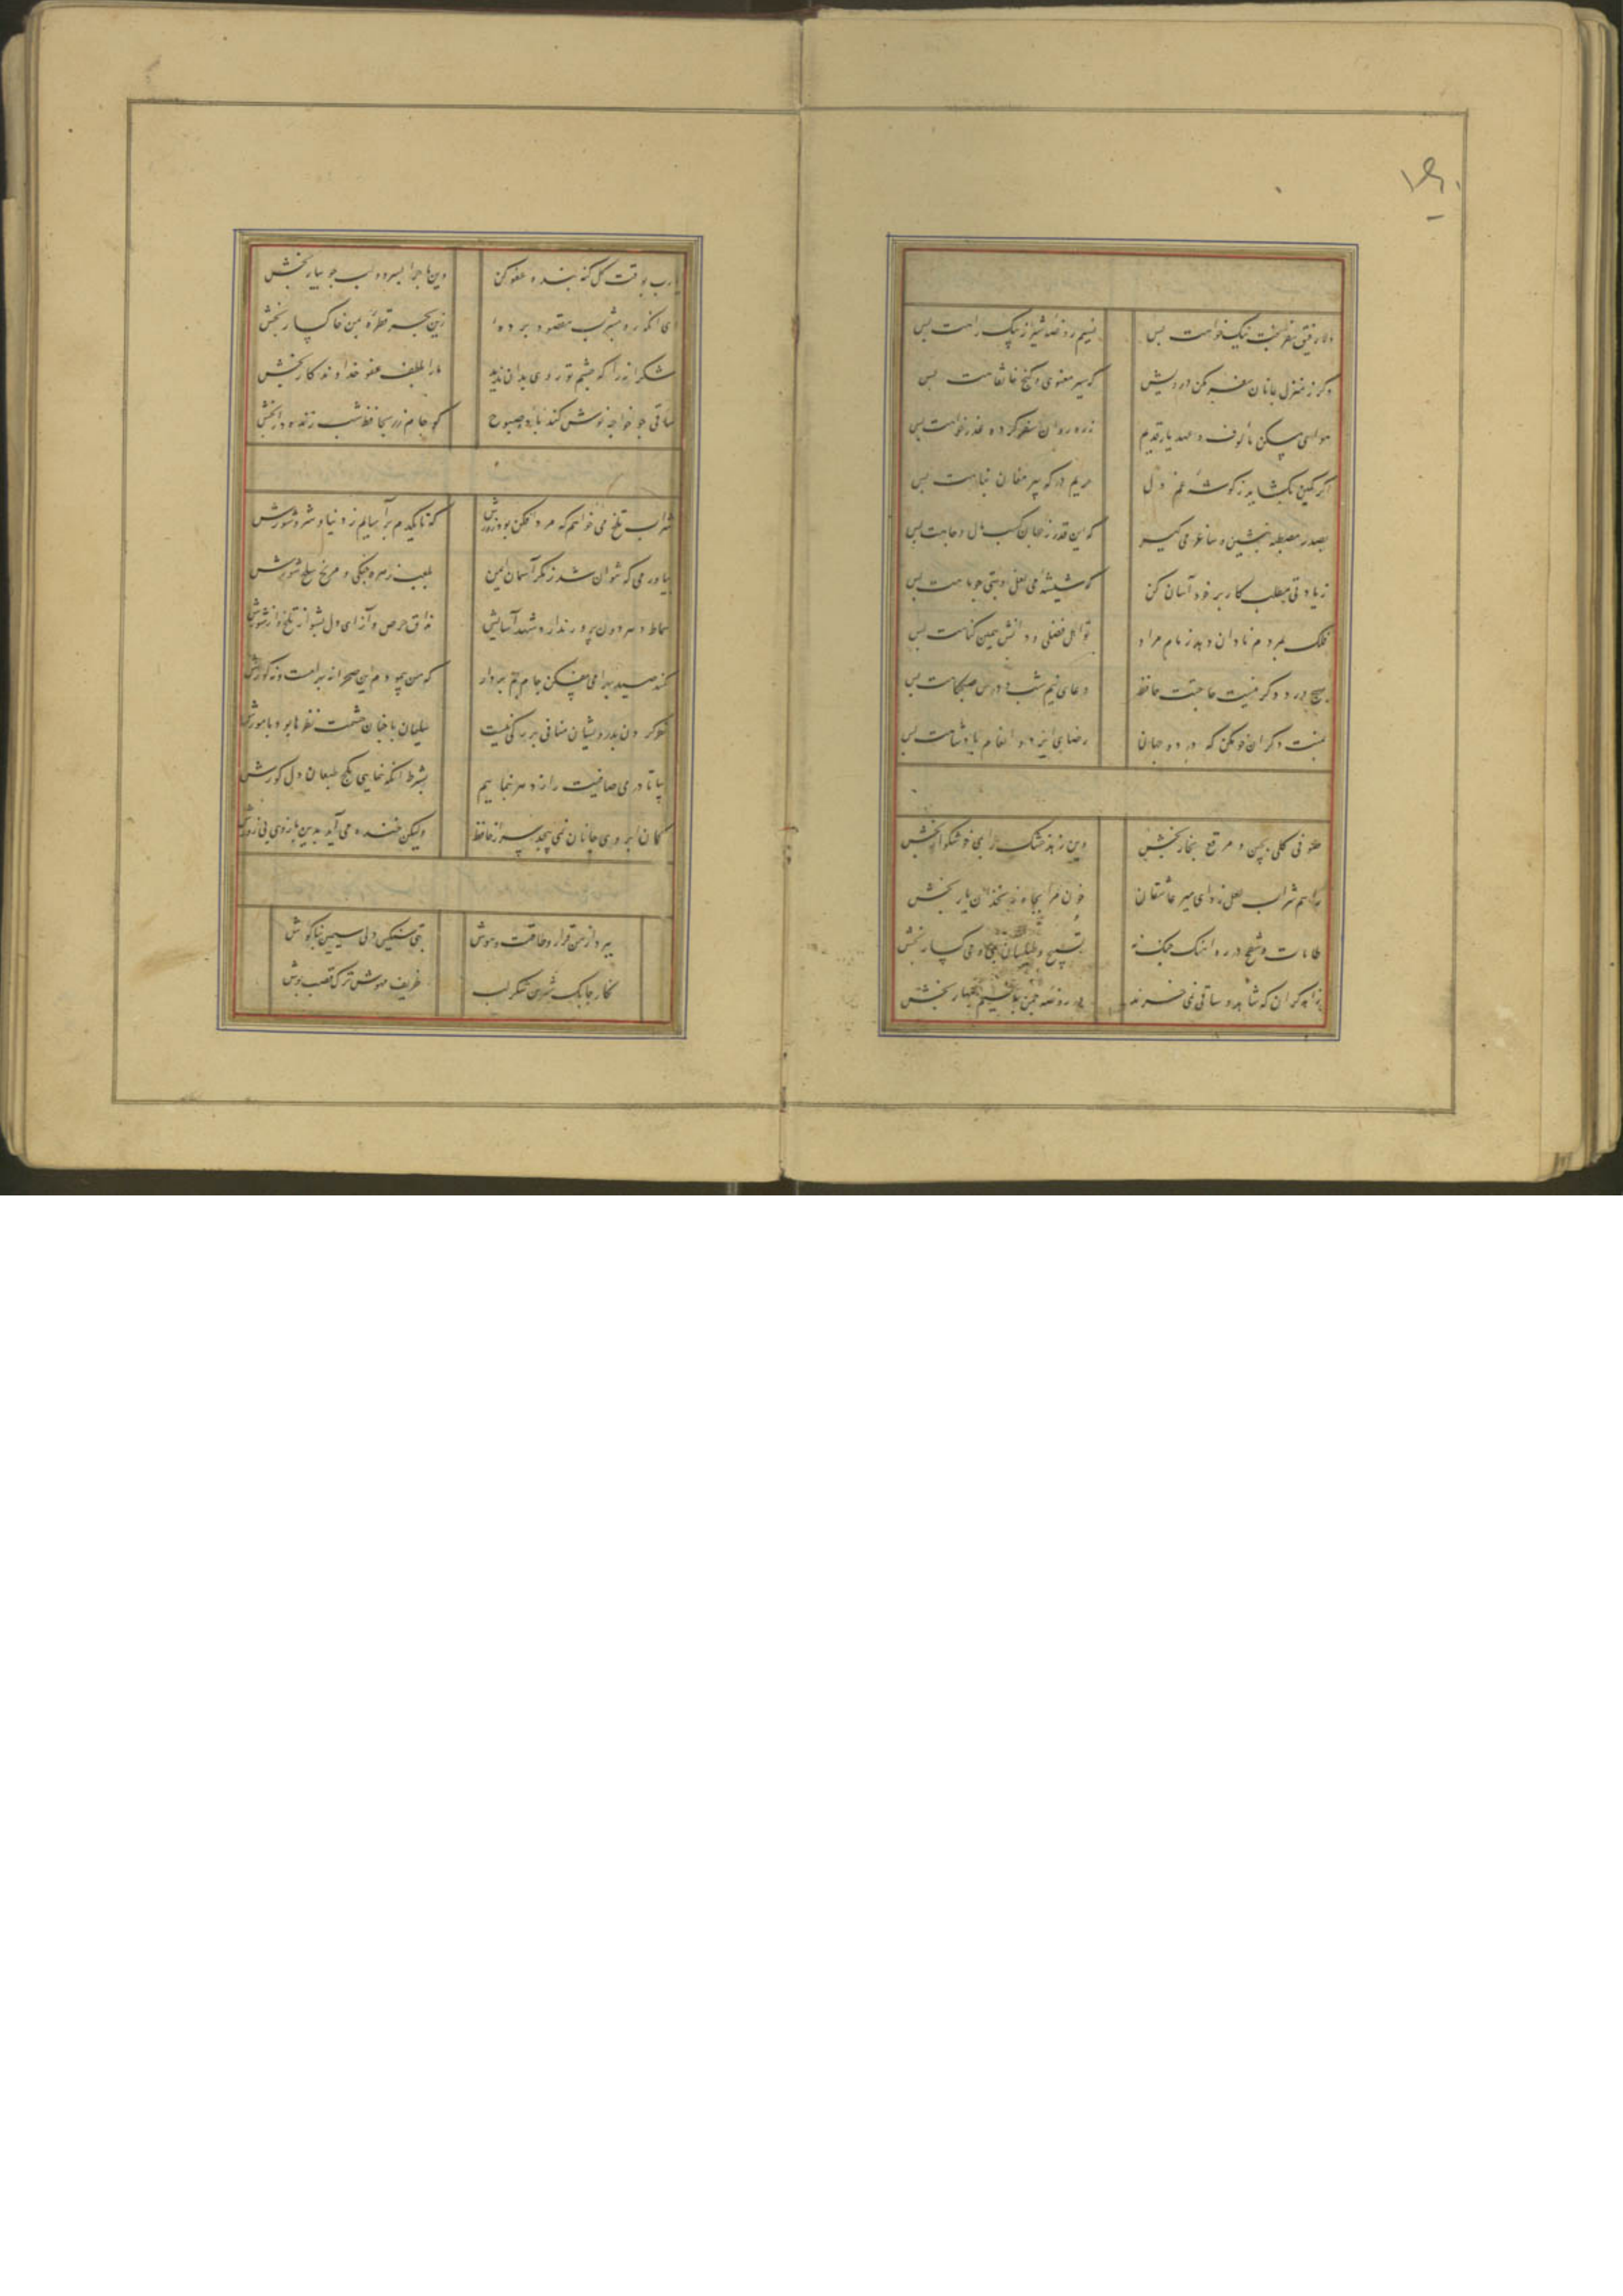 دلا رفیق سفر بخت نیکخواهت بس نسیم روضه شیراز پیک راهت بس
دگر ز منزل جانان سفر مکن درویش که سیر معنوی و کنج خانقاهت بس
هوای مسکن مألوف و عهد یار قدیم ز ره روان سفر کرده عذر خواهت بس
اگر کمین بگشاید ز گوشه غم دل حریم درگه پیر مغان پناهت بس
بصدر مصطبه بنشین و ساغر می گیر که این قدر ز جهان کسب مال و جاهت بس
زیادتی مطلب کار بر خود آسان کن که شیشه می لعل و بتی چو ماهت بس
فلک بمردم نادان دهد زمام مراد تو اهل فضلی و دانش همین گناهت بس
بهیچ ورد دگر نیست حاجتت حافظ دعای نیم شب و درس صبحگاهت بس
بمنت دگران خو مکن که در دو جهان رضای ایزد و انعام پادشاهت بس
صوفی گلی بچین و مرقع بخار بخش وین زهد خشک را بمی خوشگوار بخش
راهم شراب لعل زد ای میر عاشقان خون مرا بچاه زنخدان یار بخش
طامات و شطح در ره آهنگ چنگ نه تسبیح و طیلسان بمی و می گسار بخش
زهد گران که شاهد و ساقی نمی خرند در روضه چمن بنسیم بهار بخش
یارب بوقت گل گنه بنده عفو کن وین ماجرا بسرو لب جویبار بخش
ای آنکه ره بمشرب مقصود برده‌ای زین بحر قطره بمن خاکسار بخش
شکرانه را که چشم تو روی بدان ندید ما را بلطف عفو خداوندگار بخش
ساقی چو خواجه نوش کند باده صبوح گو جام زر بحافظ شب زنده دار بخش
شراب تلخ می خواهم که مرد افکن بود زورش که تا یکدم بر آسایم ز دنیا و شر و شورش
بیاور می که نتوان شد ز مکر آسمان ایمن بلعب زهره چنگی و مریخ سلح شورش
سماط دهر دون پرور ندارد شهد آسایش مذاق حرص و آز ای دل بشو از تلخ و از شورش
کمند صید بهرامی بیفکن جام جم بردار که من پیمودم این صحرا نه بهرامست و نه گورش
نظر کردن بدرویشان منافی بزرگی نیست سلیمان با چنان حشمت نظرها بود با مورش
بیا تا در می صافیت راز دهر بنماییم بشرط آنکه ننمایی بکج طبعان دل کورش
کمان ابروی جانان نمی پیچد سر از حافظ ولیکن خنده می آید بدین بازوی بی زورش
ببرد از من قرار و طاقت و هوش بتی سنگین دلی سیمین بناگوش
نگار چابک شیرین شکر لب ظریف مهوش ترک قصب پوش